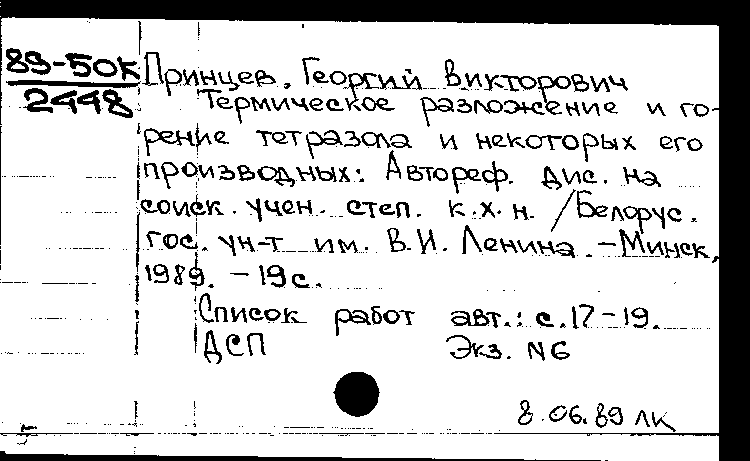 89-50К
2448
Принцев, Георгий Викторович
Термическое разложение и го-
рение тетразола и некоторых его
производных: Автореф. дис. на
соиск. учен. степ. к.х.н. /Белорус.
гос. ун-т им. В.И. Ленина. -Минск,
1989. -19с.
Список работ авт.: с.17-19.
ДСП Экз. N6
8.06.89 ЛК
5